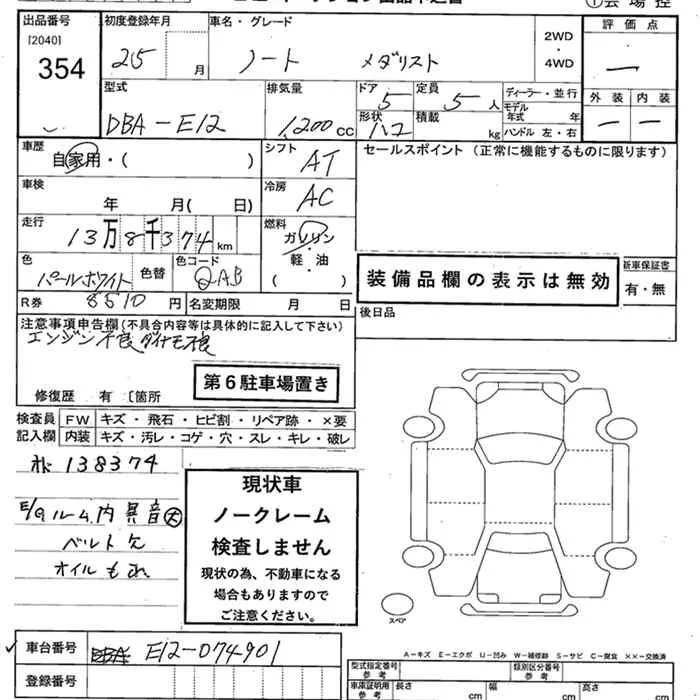 ①会場控
出品番号
[2040]
354
初度登録年月
25 月
車名・グレード
ノート メダリスト
2WD
・
4WD
評価点
—
外装 内装
— —
型式
DBA-E12
排気量
1,200 CC
ドア
5
定員
5 人
形状
ハコ
積載
kg
ディーラー・並行
モデル
年式 年
ハンドル 左・右
車歴
自家用・( )
シフト
AT
セールスポイント (正常に機能するものに限ります)
車検
年 月( 日)
冷房
AC
走行
13万8千374km
燃料
ガソリン
・
軽・油
( )
色
パールホワイト
色替
色コード
QAB
装備品欄の表示は無効
新車保証書
有・無
R券 8510 円
名変期限 月 日
後日品
注意事項申告欄(不具合内容等は具体的に記入して下さい)
エンジン不良ダイナモ不良
第6駐車場置き
修復歴 有〔箇所
検査員 FW キズ・飛石・ヒビ割・リペア跡・×要
記入欄 内装 キズ・汚レ・コゲ・穴・スレ・キレ・破レ
138374
E/Gルーム内異音大
ベルト欠
オイルもれ
現状車
ノークレーム
検査しません
現状の為、不動車になる
場合もありますので
ご注意ください。
スペア
A-キズ E-エクボ U-凹み W-補修跡 S-サビ C-腐食 ××-交換済
車台番号 E12-074901
登録番号
型式指定番号
参考
類別区分番号
参考
車庫証明用
参考
長さ cm
幅 cm
高さ cm